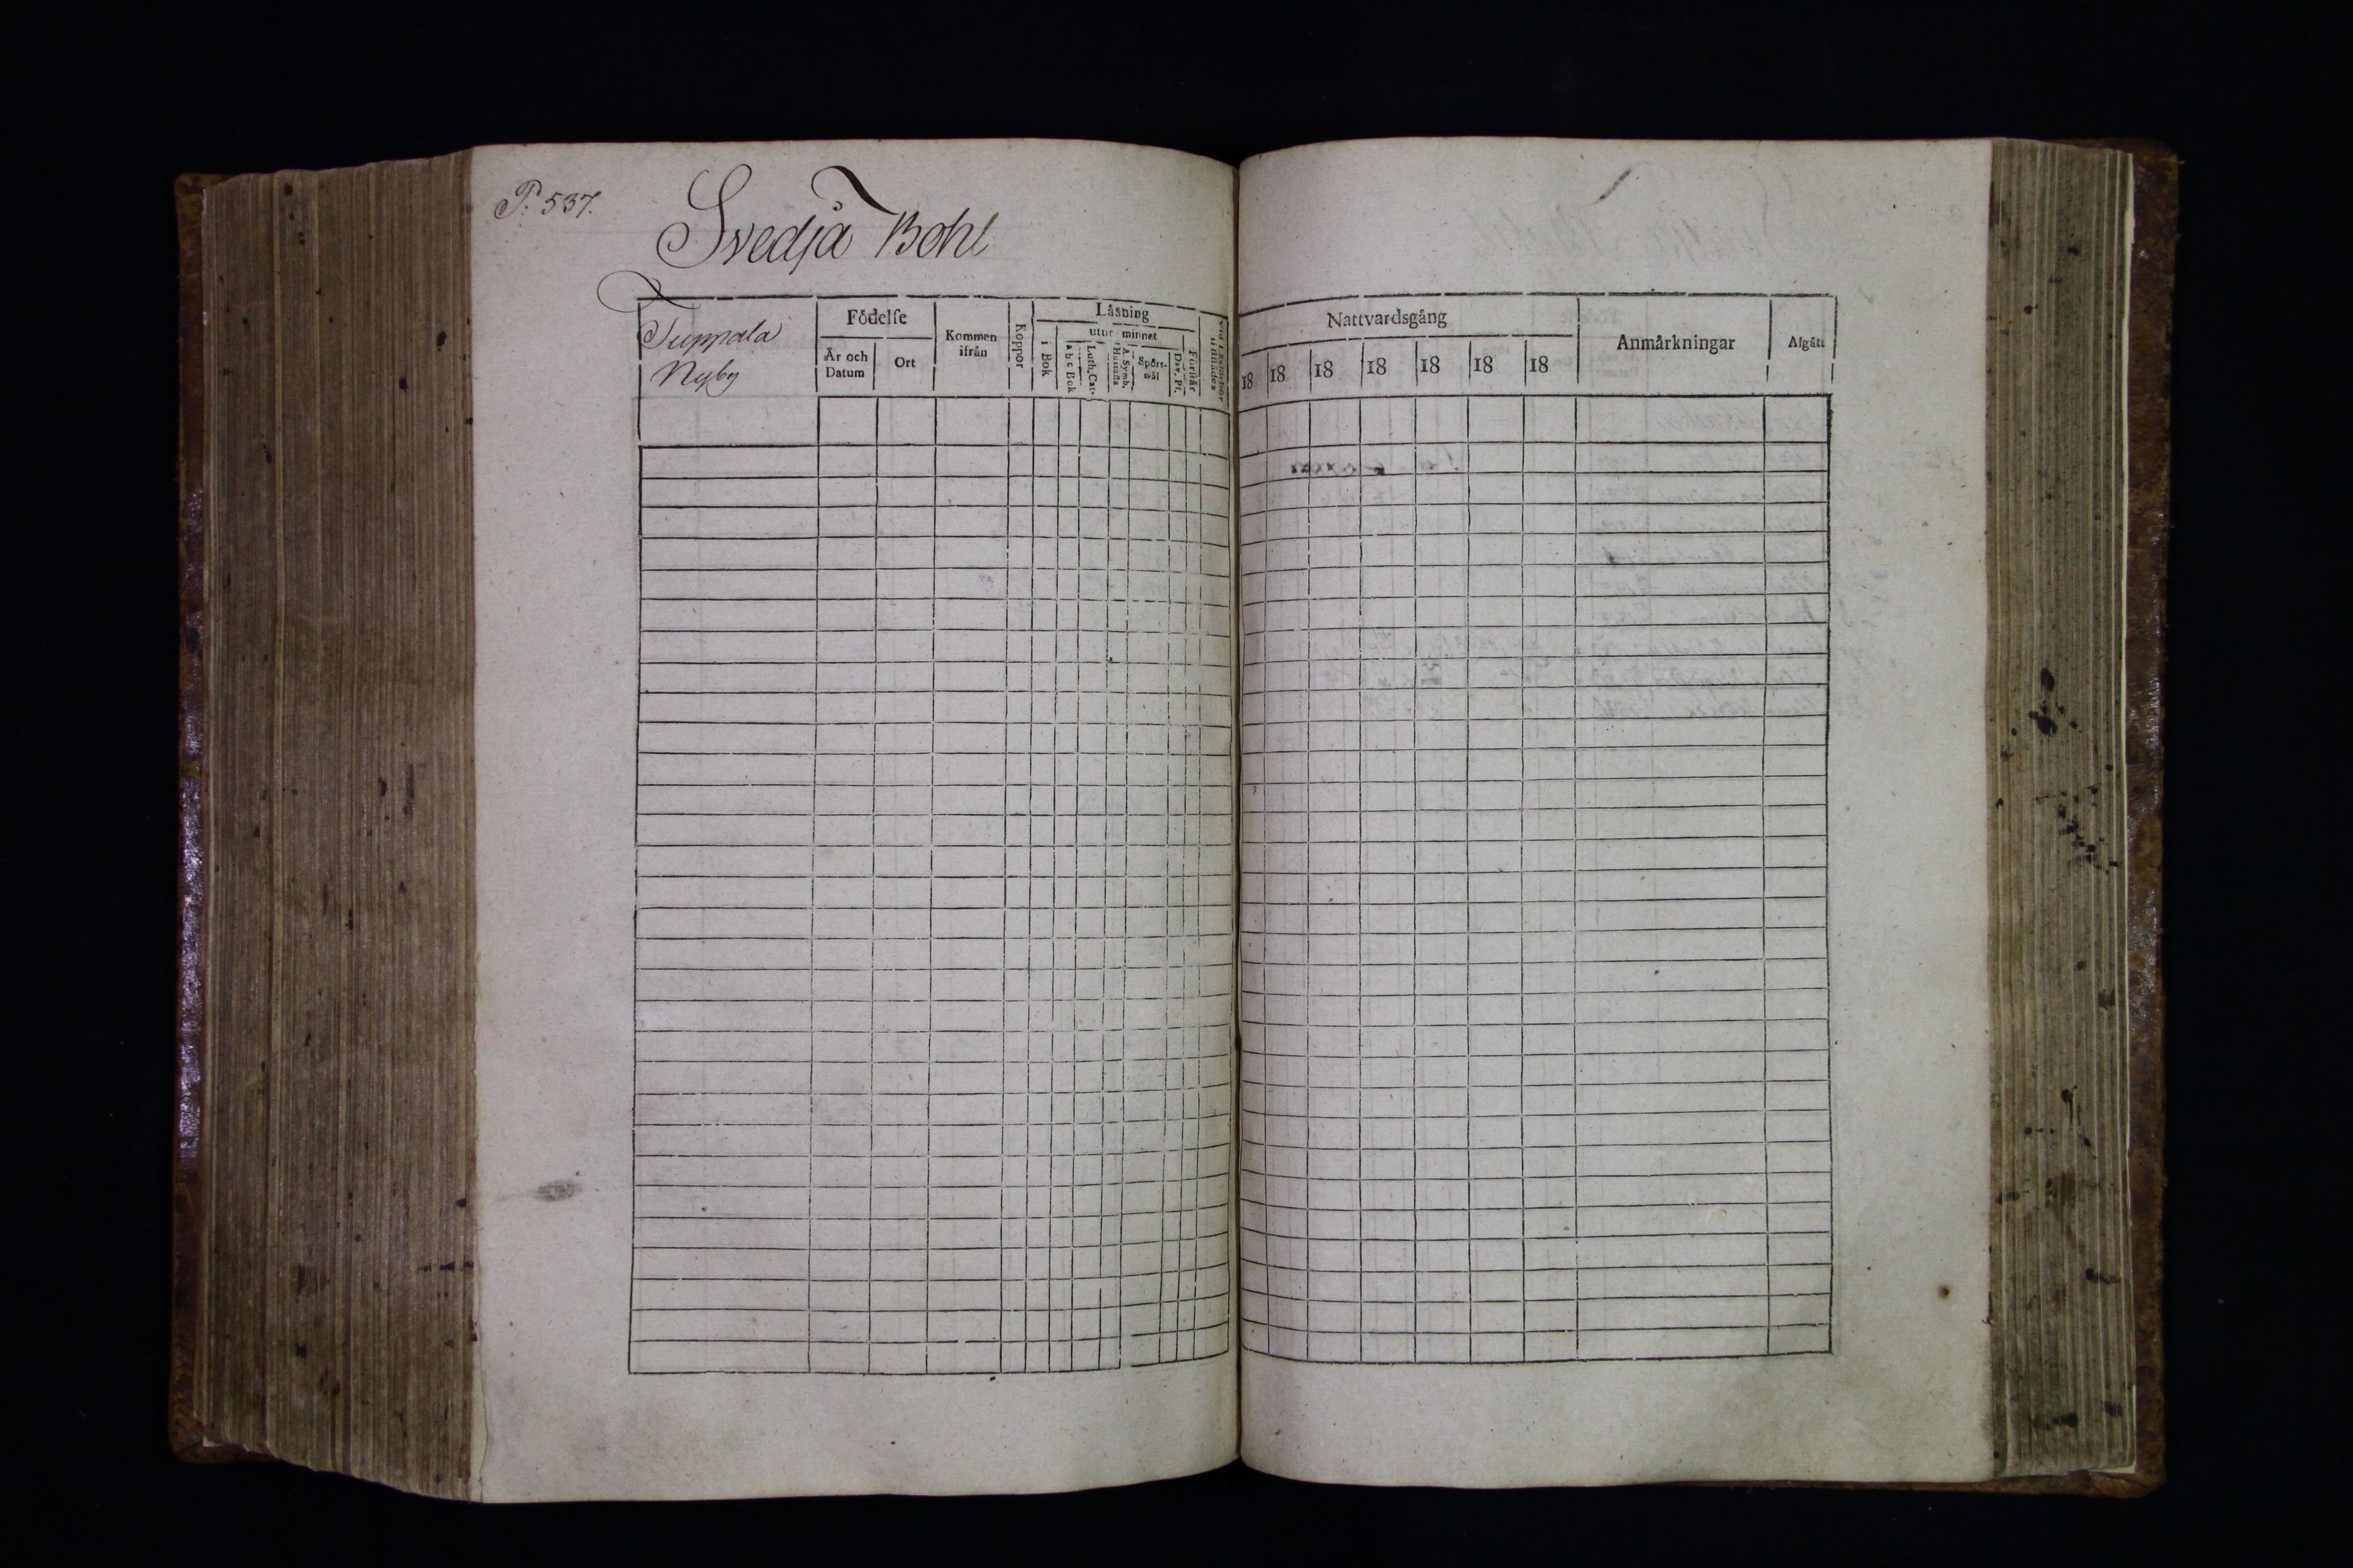 P. 537.
Svedja Bohl
Tuppala
Nyby
Födelse
År och Datum
Ort
Kommen ifrån
Koppor
Läsning
i Bok
utur minnet
a b c Bok
Luth. Cat.
A. Symb. Hustafla
Spörsmål
Dav. Ps.
Förstår
Nattvardsgång
18 18 18 18 18 18 18
Anmärkningar
Afgått